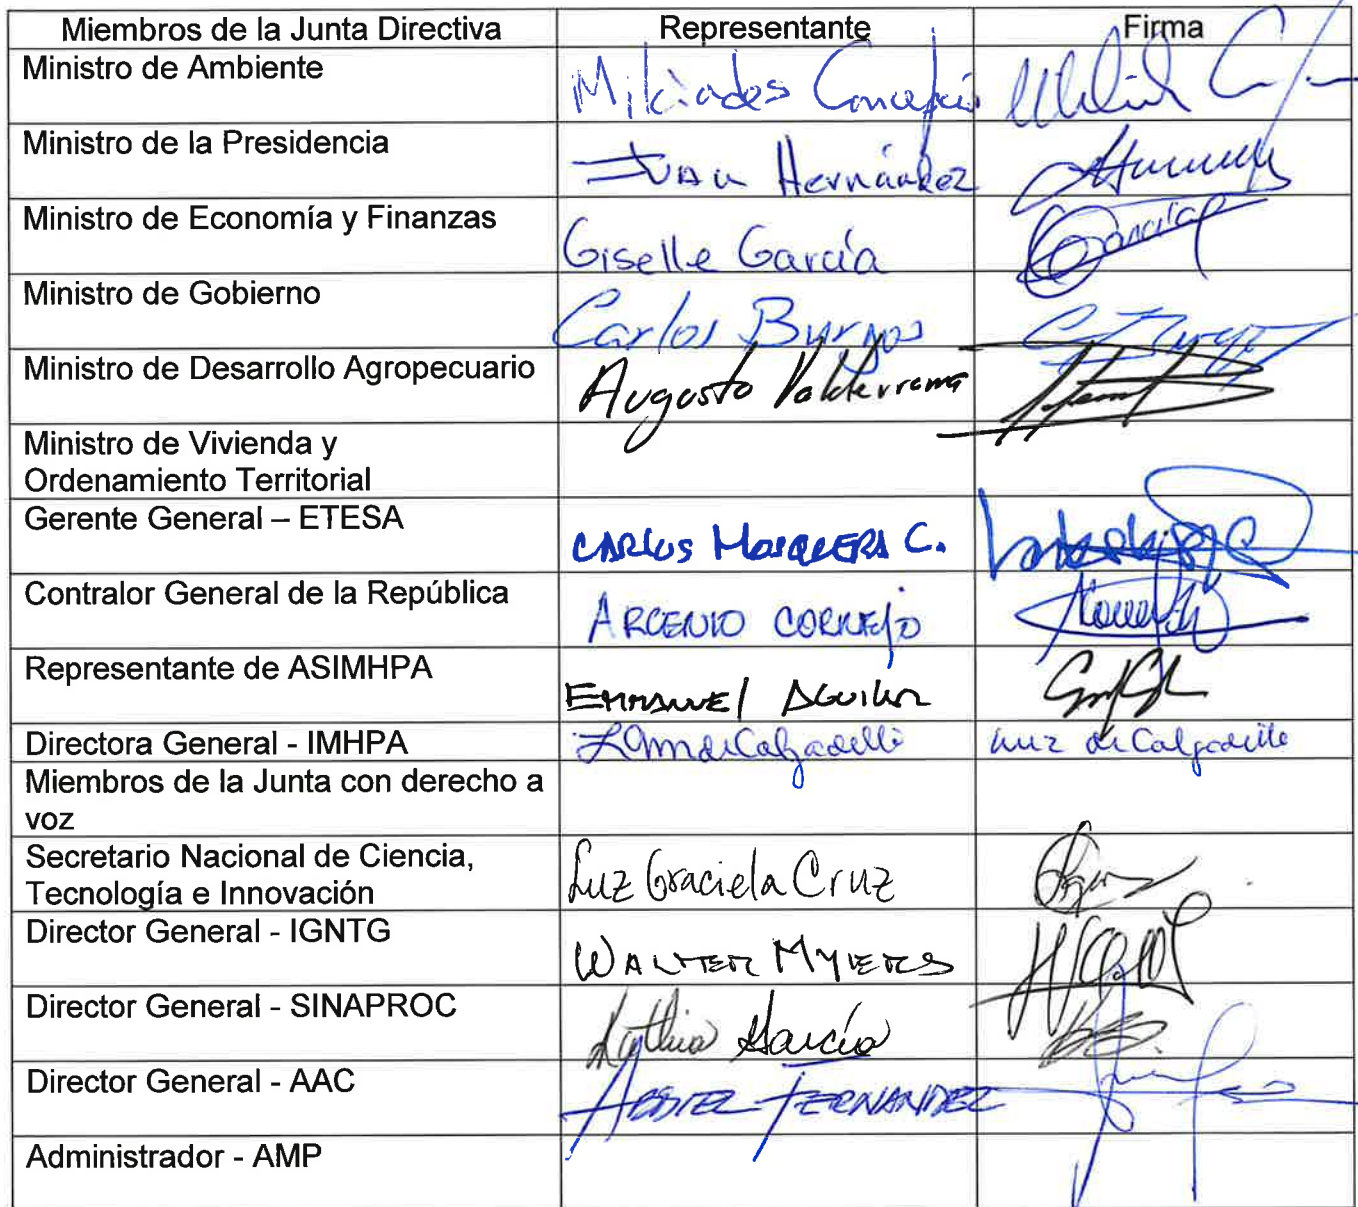 Miembros de la Junta Directiva Representante Firma
Ministro de Ambiente Milciades Concepción
Ministro de la Presidencia Juan Hernández
Ministro de Economía y Finanzas Giselle García García
Ministro de Gobierno Carlos Burgos
Ministro de Desarrollo Agropecuario Augusto Valderrama
Ministro de Vivienda y
Ordenamiento Territorial
Gerente General – ETESA CARLOS MOSQUERA C.
Contralor General de la República ARCENIO CORNEJO
Representante de ASIMHPA EMMANUEL AGUILAR
Directora General - IMHPA Luz de Calzadilla
Miembros de la Junta con derecho a
voz
Secretario Nacional de Ciencia,
Tecnología e Innovación Luz Graciela Cruz
Director General - IGNTG WALTER MYERS
Director General - SINAPROC Kathia García
Director General - AAC FERNANDEZ
Administrador - AMP